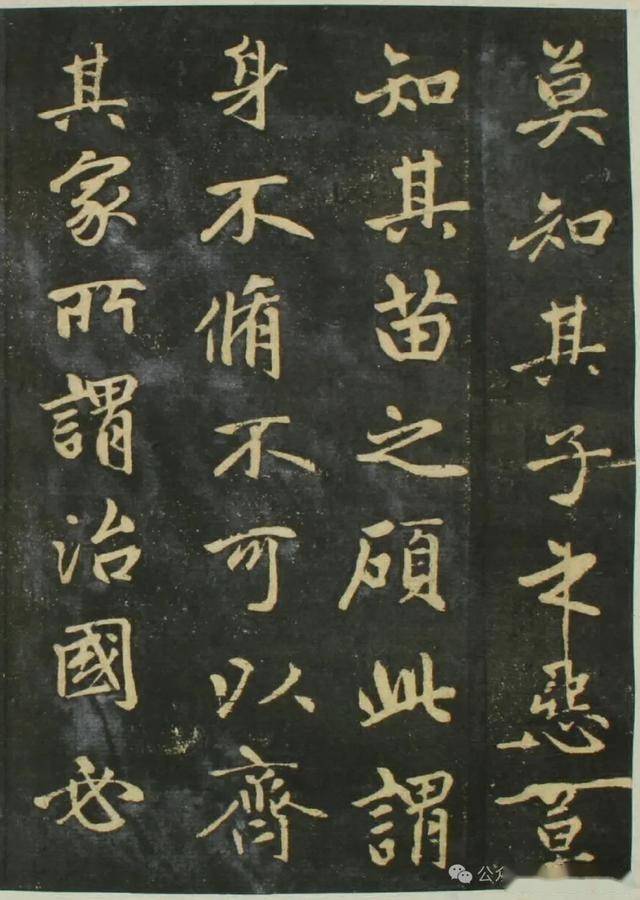 莫知其子之惡莫
知其苗之碩此謂
身不脩不可以齊
其家所謂治國必
公众